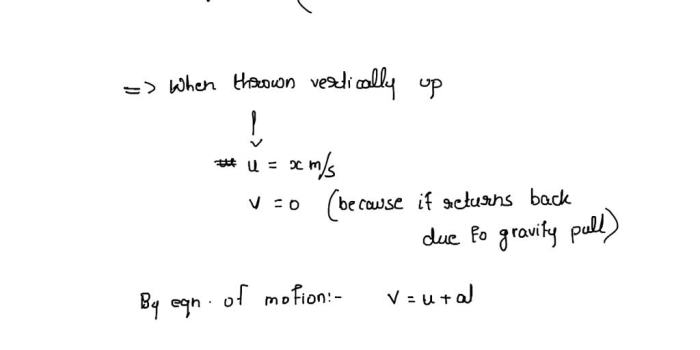 => When thrown vertically up
u = x m/s
v = 0 (because it returns back
due to gravity pull)
By eqn. of motion:- v = u + at